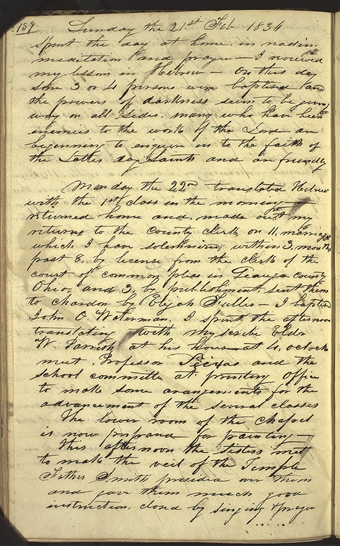 159
Sunday the 21st Feb 1836
Spent the day at home, in reading
meditation and prayer — I reviewed
my lessons in Hebrew — On this day
some 3 or 4 persons were baptised and
the powers of darkness seem to be giving
way on all sides. many who have been
enemies to the work of the Lord are
beginning to enquire in to the faith of
the Latter day Saints and are friendly
Monday the 22nd translated Hebrew
with the 1st class in the morning —
returned home and made out my
returns to the County clerk on 11. marriages
which I have solemnized within 3. months
past 8, by license from the clerk of the
court of common pleas in Geauga county
Ohio, and 3, by publishment, sent them
to Chardon by Elijah Fuller — I baptised
John O. Waterman, I spent the afternoon
translating with my scribe Elder
W. Parrish at his house at 4, oclock
meet Professor Seixas and the
school committe at printing office
to make some arangements for the
advancement of the several classes
The lower room of the chapel
is now prepared for painting —
This afternoon the sisters met
to make the veil of the Temple
Father Smith presided over them
and gave them much good
instruction, closed by singing & prayer